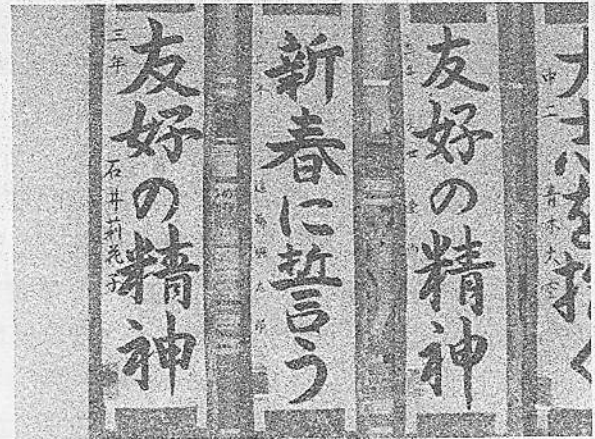 大志を抱く
中二 青木大
友好の精神
新春に誓う
友好の精神
三年 石井莉花子